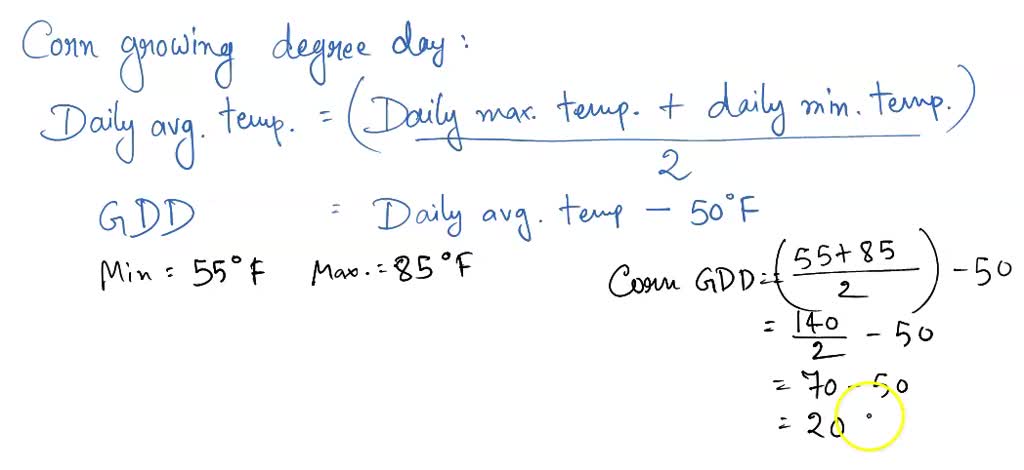 Corn growing degree day:
Daily avg. temp. = (Daily max. temp. + daily min. temp.)
2
GDD = Daily avg. temp - 50°F
Min = 55°F Max. = 85°F
Corn GDD = (55+85
2) - 50
= 140
2 - 50
= 70 - 50
= 20